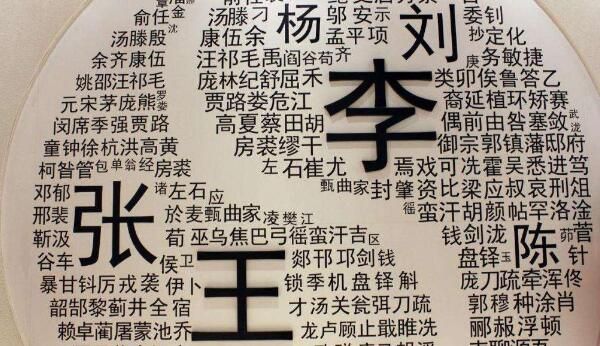 俞任金
沈
汤滕刁
杨
邬安示
刘
委钊
汤滕殷
康伍余
孟平项
抄定化
余齐康伍
汪祁毛禹阎谷芶齐
李
庚务敏捷
姚邵汪祁毛
庞林纪舒屈禾
类卯俟鲁答乙
元宋茅庞熊罗娄
贾路娄危江
裔延植环矫赛
闵席季强贾路
高夏蔡田胡
偶前由昝塞敛武泷
童钟徐杭洪高黄
房裘缪干
御宗郭镇藩邸府
柯昝管包单翁经房裘
左石崔尤
焉戏可冼霍吴悉进笃
邓郁
张
诸左石应
甄曲家封肇资比梁应叔哀刑俎
邢裴
於麻甄曲家凌樊江
徭蛮汗胡颜帖罕洛淦
靳汲
荀巫乌焦巴弓徭蛮汗吉区
钱剑泷
陈
茆菅
谷车
侯卫
王
郯邗邛剑钱
盘铎玉
针
暴甘钭厉戎袭
伊卜
锁季机盘铎斛
庞刀疏牵浑佟
韶郜黎蓟井全宿
才汤关瓮弭刀疏
郭穆种涂肖
赖卓蔺屠蒙池乔
龙卢顾止戢睢冼
郦郝浮顿